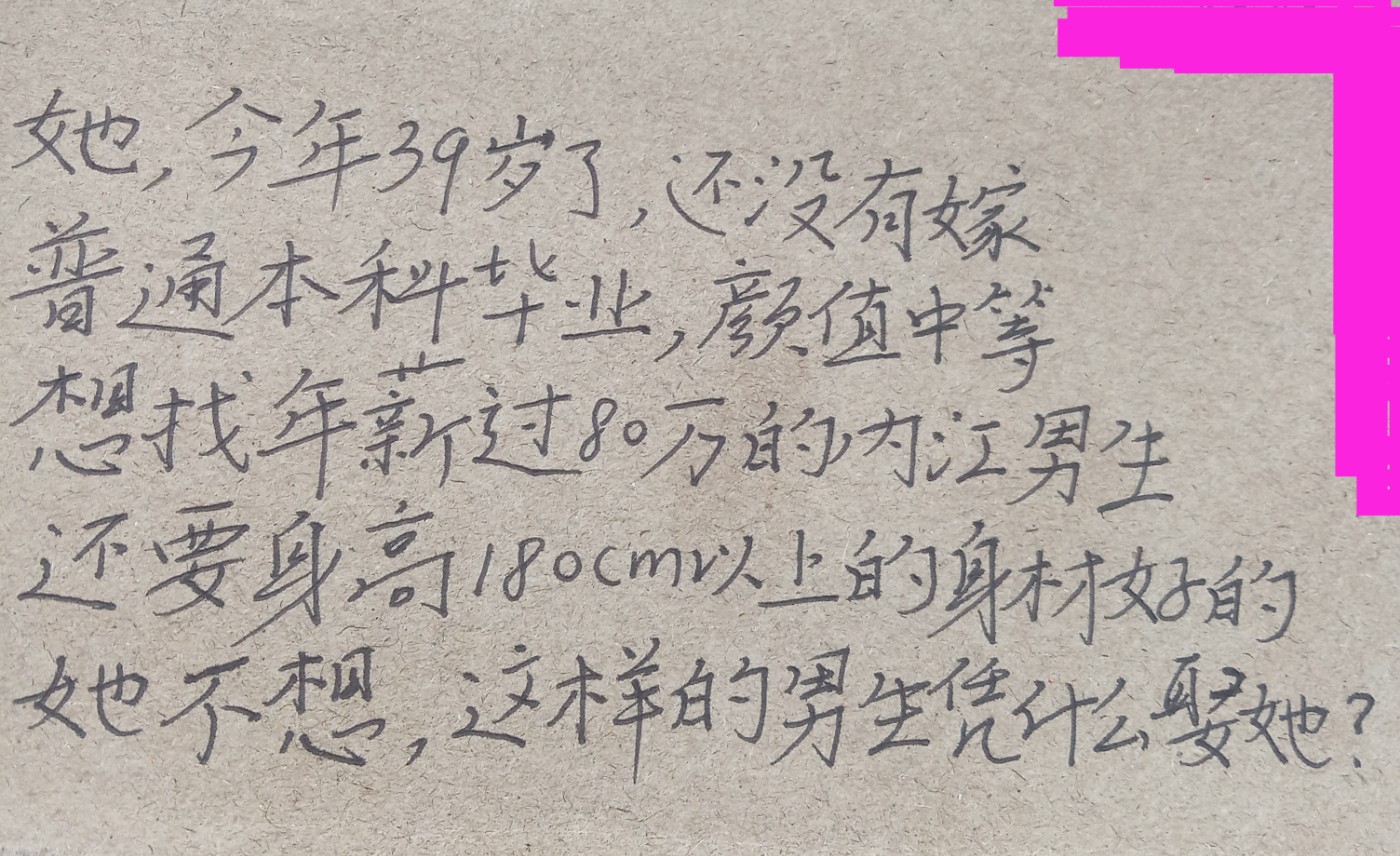 她,今年39岁了,还没有嫁
普通本科毕业,颜值中等
想找年薪过80万的内江男生
还要身高180cm以上的身材好的
她不想,这样的男生凭什么娶她?